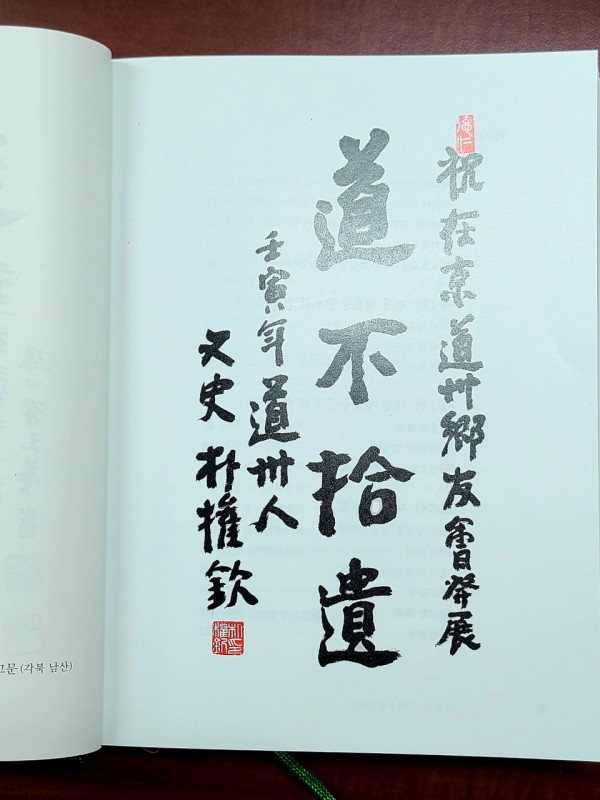 祝在京道州鄕友會發展
道不拾遺
壬寅年 道州人
文史 朴權欽
문 (각북 남산)